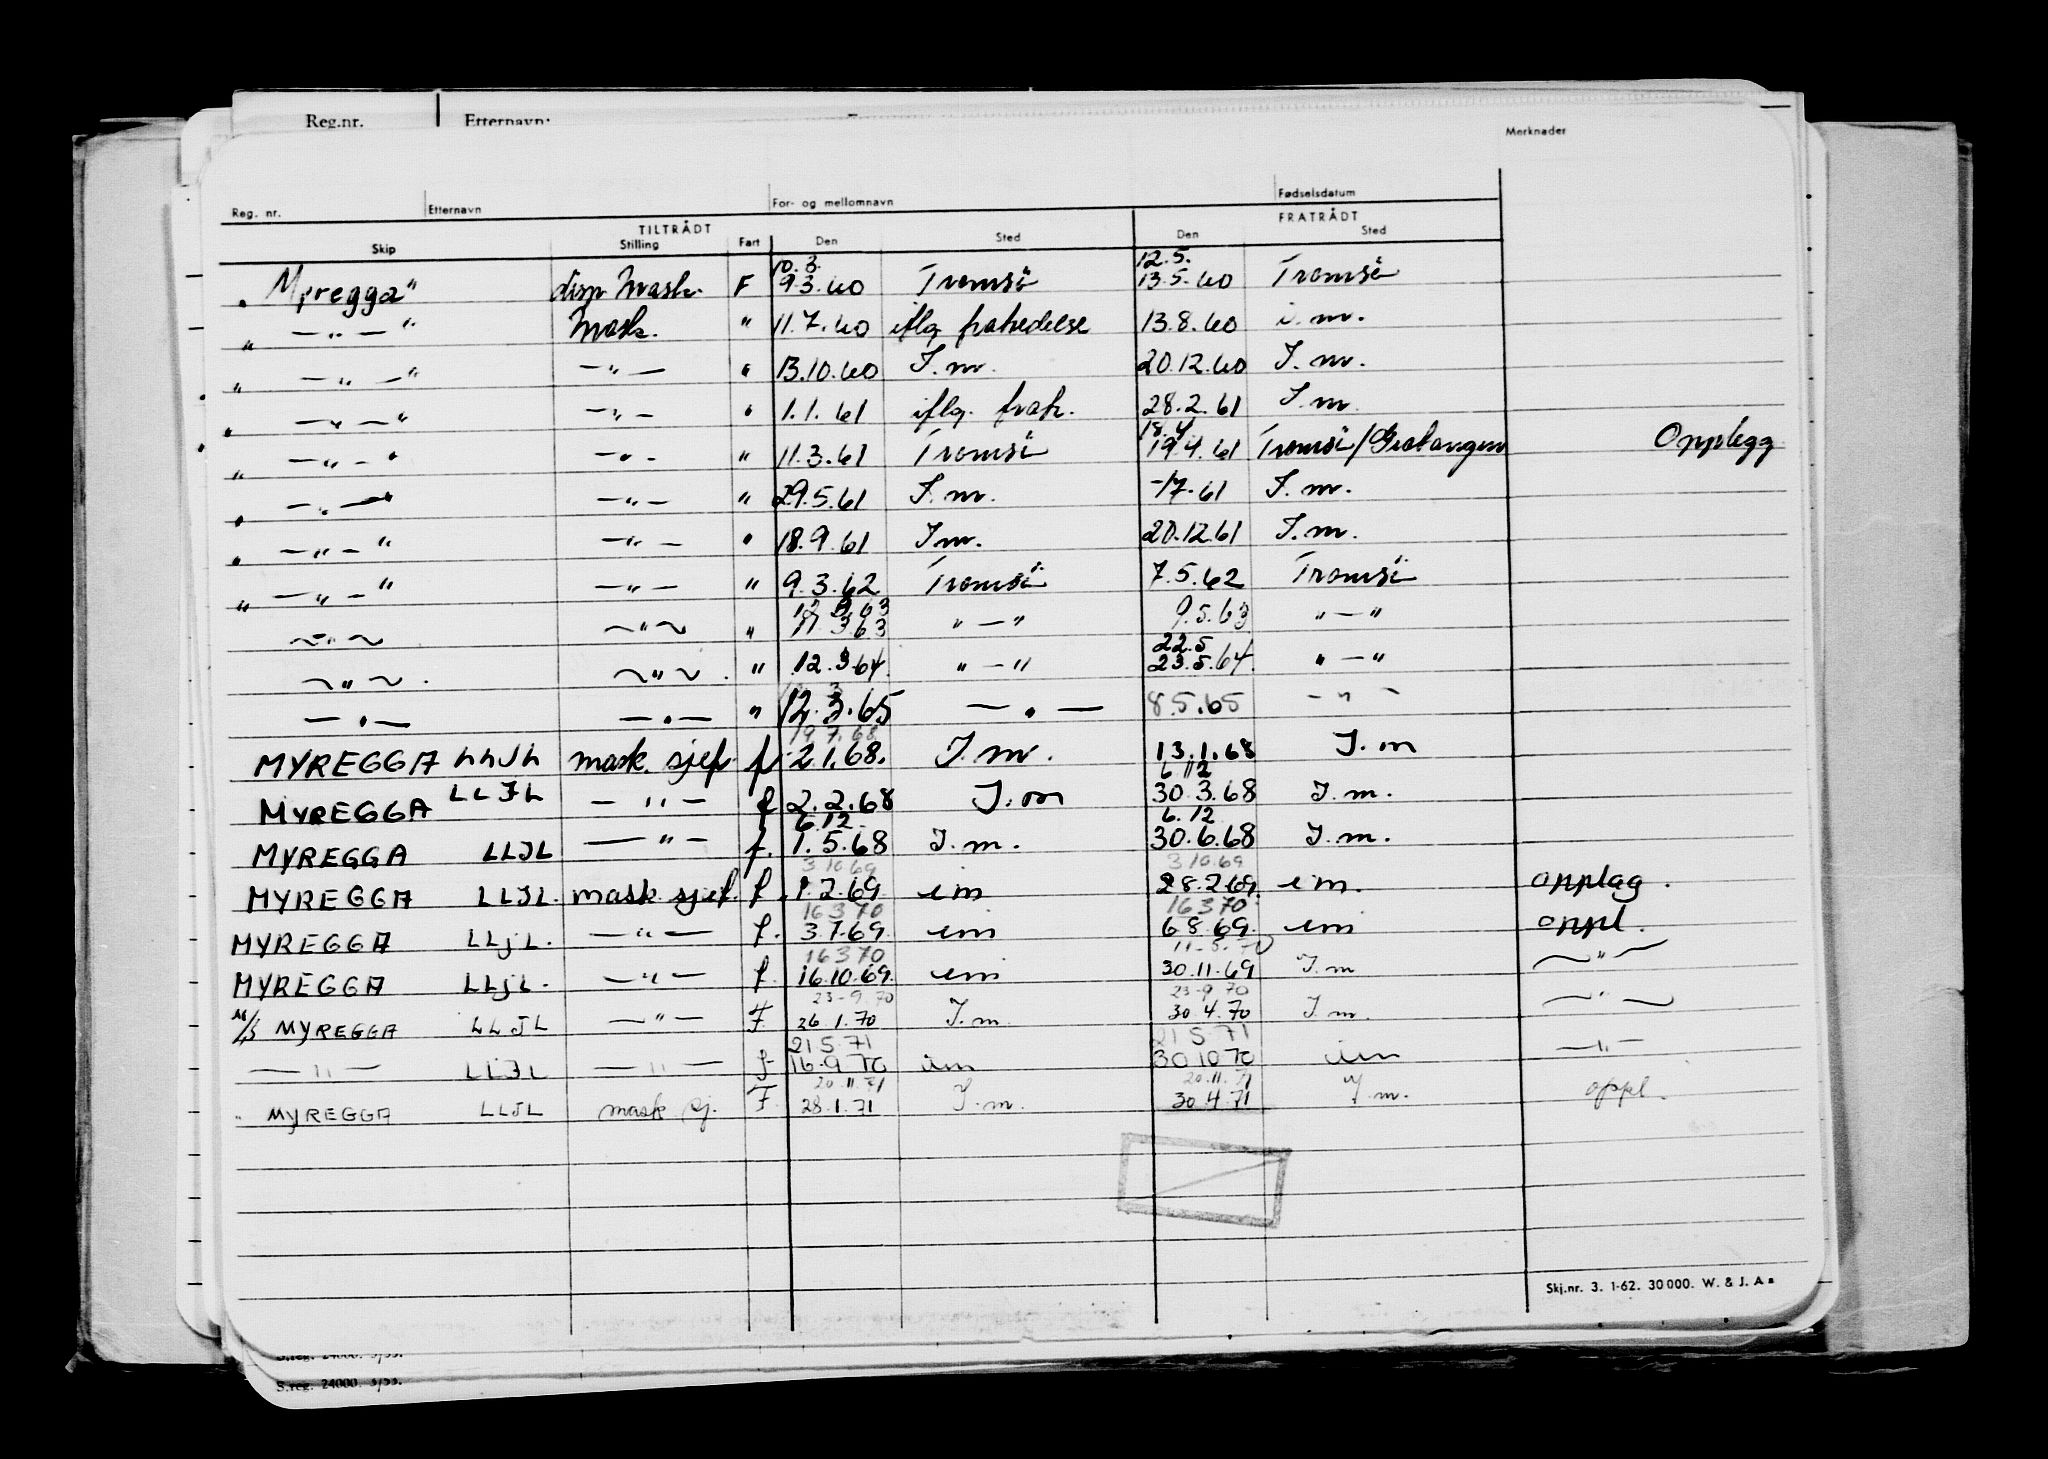 Reg.nr. Etternavn:
Merknader
Reg. nr. Etternavn For- og mellomnavn Fødselsdatum
TILTRÅDT FRATRÅDT
Skip Stilling Fart Den Sted Den Sted
10.3. 12.5.
„ Myregga" disp Mask. F 9.3.60 Tromsö 13.5.60 Tromsö
„ —„—" Mask. " 11.7.60 iflg fratredelse 13.8.60 i.m.
„ —„—" —"— " 13.10.60 I.m. 20.12.60 I.m.
„ —„—" —"— " 1.1.61 iflg. fratr. 28.2.61 I.m
18.4
„ —„—" —"— " 11.3.61 Tromsö 19.4.61 Tromsö/Gratangen Opplegg
„ —„—" —"— " 29.5.61 I.m. -17.61 I.m.
„ —„—" —"— " 18.9.61 I.m. 20.12.61 I.m.
„ —„—" —"— " 9.3.62 Tromsö 7.5.62 Tromsö
12 3.63
~"~ ~"~ " 11 3.63 "—" 9.5.63 "—"
22.5
~"~. ~"~. " 12.3.64. "—" 23.5.64. "—"
—"— —"— " 12.3.65 —"— 8.5.65 —"—
19.7.68
MYREGGA LLJL mask. sjef f 2.1.68. I.m. 13.1.68 I.m
6 12
MYREGGA LLJL —"— f 2.2.68 I.m 30.3.68 I.m.
6.12 6.12
MYREGGA LLJL —"— f. 1.5.68 I.m. 30.6.68 I.m.
3 10.69 3 10.69
MYREGGA LLJL. mask. sjef. f. 1.2.69. im 28.2.69. im. opplag.
16 3 70 16 3 70
MYREGGA LLJL. —"— f. 3.7.69. im 6.8.69. im oppl.
16 3 70 11-5.70
MYREGGA LLJL. —"— f. 16.10.69. im 30.11.69 I.m —"—
23-9.70 23-9 70
M/S MYREGGA LLJL —"— F. 26.1.70 I.m. 30.4.70 I.m. —"—
21 5 71 21 5 71
—"— LLJL —"— f 16.9 70 im 30.10 70 im —"—
20.11.71 20.11.71
" MYREGGA LLJL mask sj. F. 28.1.71 I.m. 30.4.71 I.m. oppl.
Skj.nr. 3. 1-62. 30000. W. & J. A s
S.reg. 24000. 3/53.
S.reg. 24000. 3/53.